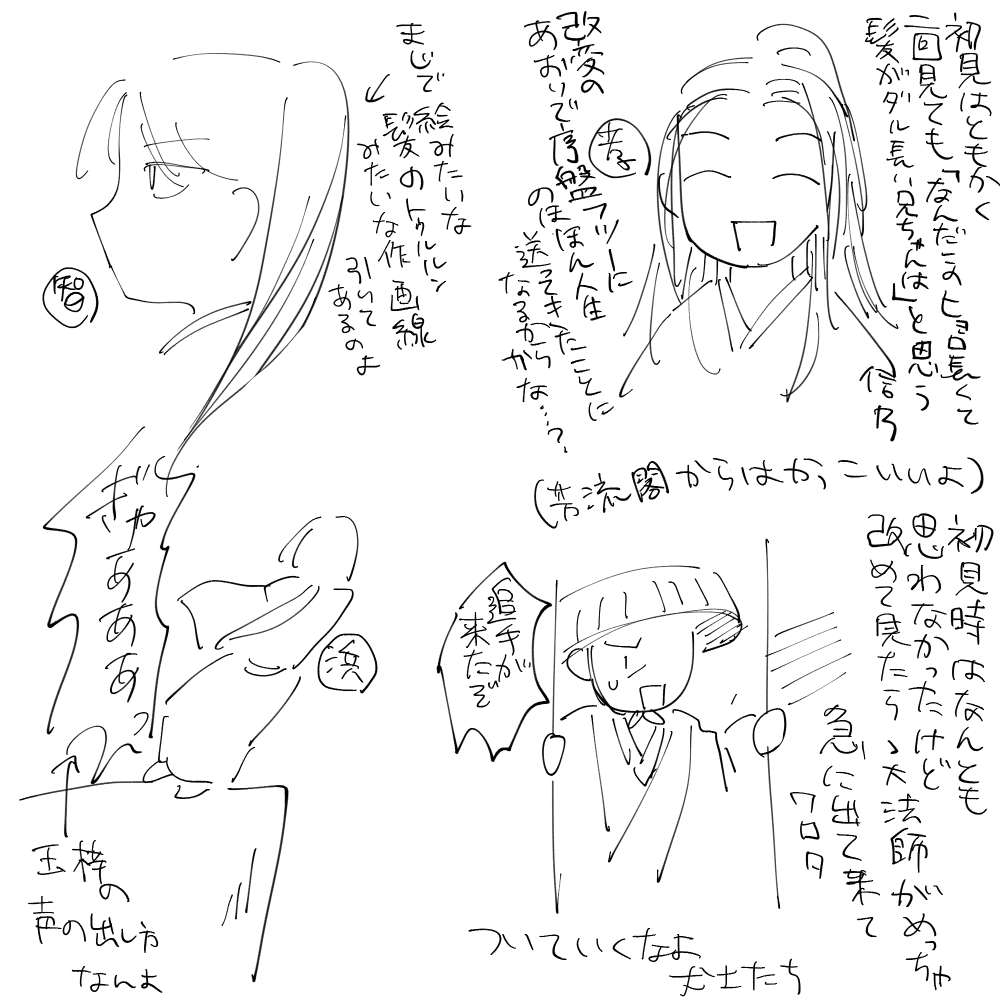 初見はともかく
二回見ても「なんだこのヒョロ長くて
髪がダル長い兄ちゃんは」と思う
信乃
孝
改変の
あおりで序盤フツーに
のほほん人生
送ってきたことに
なるからかな…?
(芳流閣からはかっこいいよ)
まじで
絵みたいな
髪のトゥルルン
みたいな作画線
引いて
あるのよ
智
初見時はなんとも
思わなかったけど
改めて見たら、大法師がめっちゃ
急に出て来て
ワロタ
追手が
来たぞ
ついていくなよ
犬士たち
ぎゃあああ
浜
玉梓の
声の出し方
なんよ